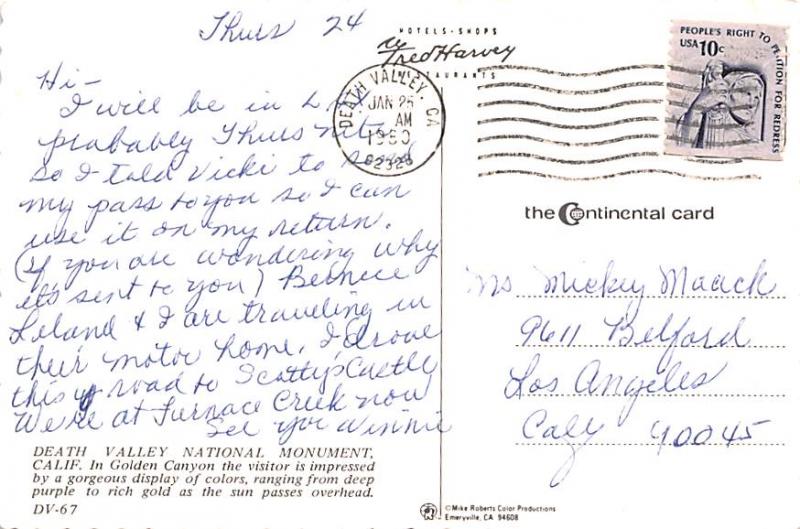 Thurs 24
Hi-
I will be in L.A.
probably Thurs
so I told Vicki to send
my pass to you so I can
use it on my return.
(if you are wondering why
it's sent to you) Bernece
Leland & I are traveling in
their motor home, I drove
this road to Scotty's Castly
We're at Furnace Creek now
See you Winnie
DEATH VALLEY NATIONAL MONUMENT,
CALIF. In Golden Canyon the visitor is impressed
by a gorgeous display of colors, ranging from deep
purple to rich gold as the sun passes overhead.
DV-67
HOTELS · SHOPS
by Fred Harvey
RESTAURANTS
DEATH VALLEY, CA
JAN 25
AM
1980
92328
PEOPLE'S RIGHT TO PETITION FOR REDRESS
USA 10c
the Continental card
Ms Mickey Maack
9611 Belford
Los Angeles
Caly 90045
©Mike Roberts Color Productions
Emeryville, CA 94608